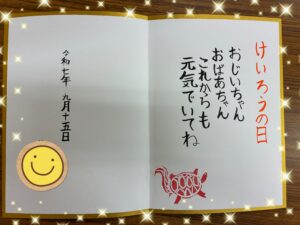 けいろうの日
おじいちゃん
おばあちゃん
これからも
元気でいてね
令和七年 九月十五日